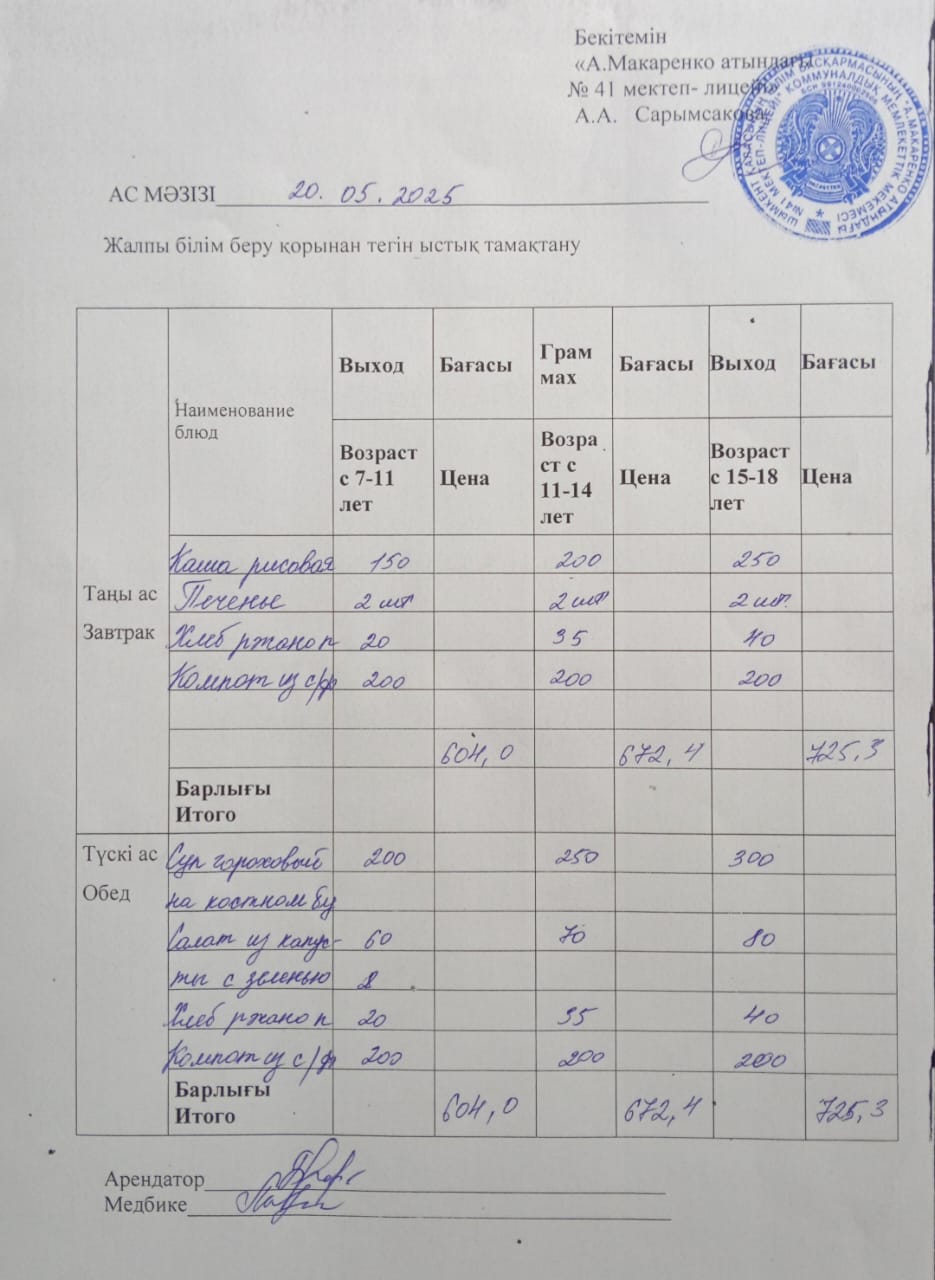 Бекітемін
«А.Макаренко атындағы
№ 41 мектеп- лицейі»
А.А. Сарымсакова
АС МӘЗІЗІ 20. 05. 2025
Жалпы білім беру қорынан тегін ыстық тамақтану
Наименование блюд
Выход Бағасы Грам мах Бағасы Выход Бағасы
Возраст с 7-11 лет Цена Возра ст с 11-14 лет Цена Возраст с 15-18 лет Цена
Таңы ас
Завтрак
Каша рисовая 150 200 250
Печенье 2 шт 2 шт 2 шт.
Хлеб ржано п 20 35 40
Компот из с/ф 200 200 200
604,0 672,4 725,3
Барлығы
Итого
Түскі ас
Обед
Суп гороховый 200 250 300
на костном бу
Салат из капус- 60 70 80
ты с зеленью
Хлеб ржано п 20 35 40
Компот из с/ф 200 200 200
Барлығы
Итого 604,0 672,4 725,3
Арендатор
Медбике